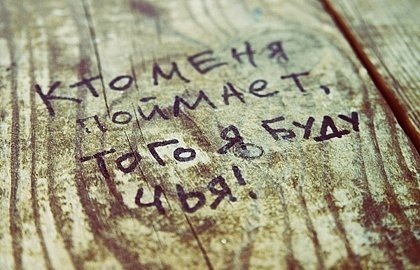 КТО МЕНЯ
ПОЙМАЕТ,
ТОГО Я БУДУ
ЧЬЯ!